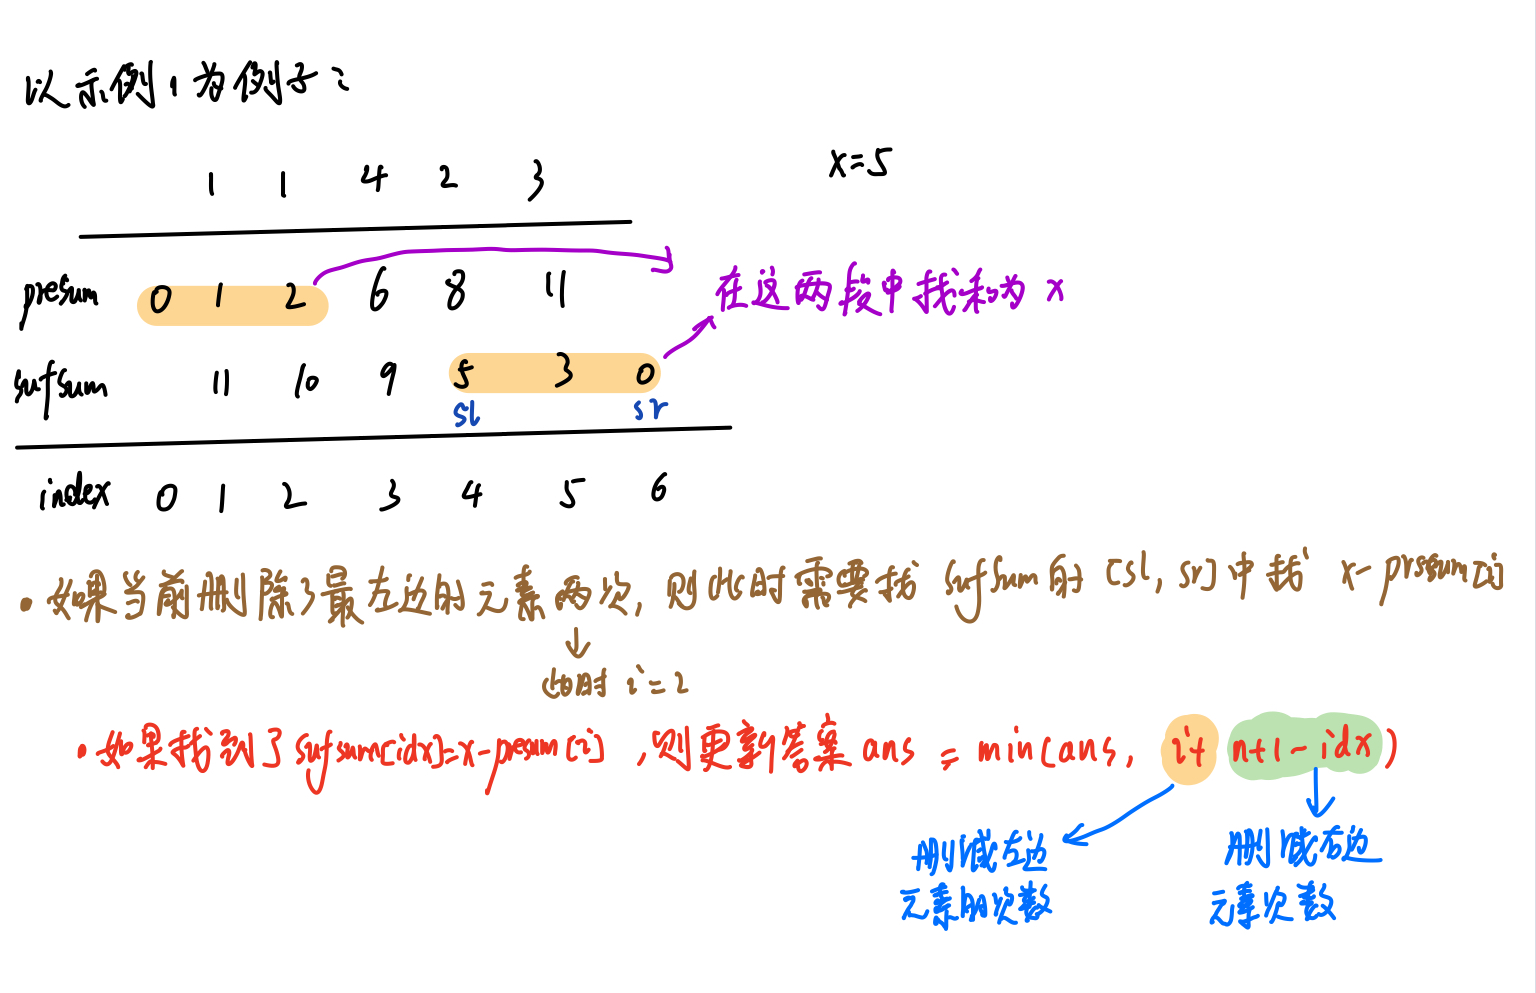 以示例1为例子:
1 1 4 2 3
x=5
presum 0 1 2 6 8 11
在这两段中找和为 x
sufsum 11 10 9 5 3 0
sl sr
index 0 1 2 3 4 5 6
• 如果当前删除了最左边的元素两次, 则此时需要找 sufsum的 [sl, sr]中找 x- prssum[i]
此时 i=2
• 如果找到了 sufsum[idx]=x-presum[i] ,则更新答案 ans = min(ans, i+ n+1-idx)
删减左边
元素的次数
删减右边
元素次数